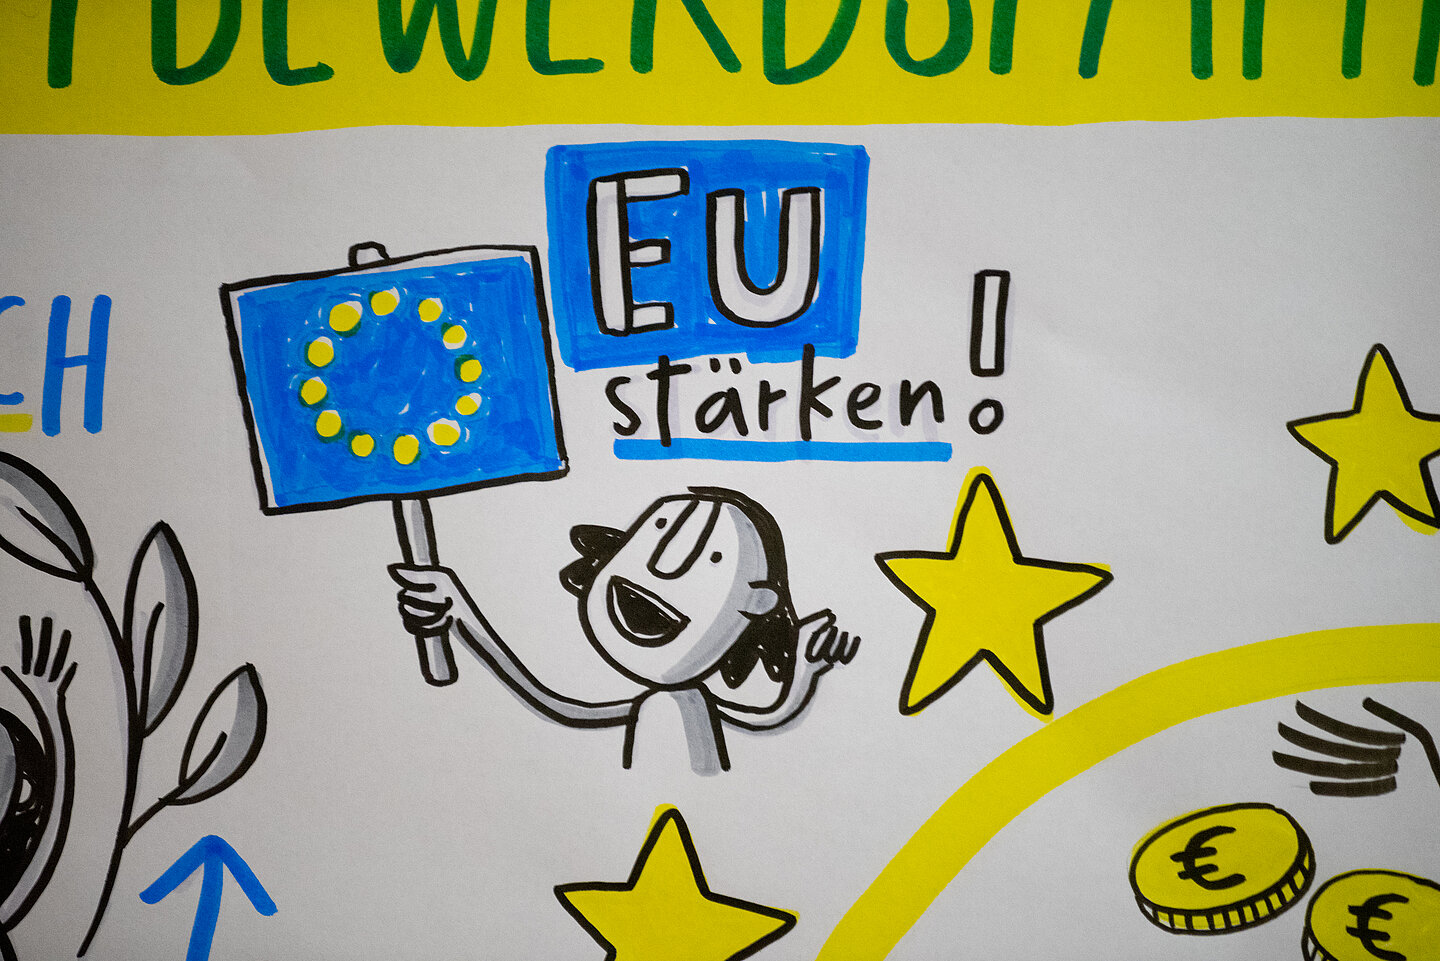 EU
stärken!
CH
€
€